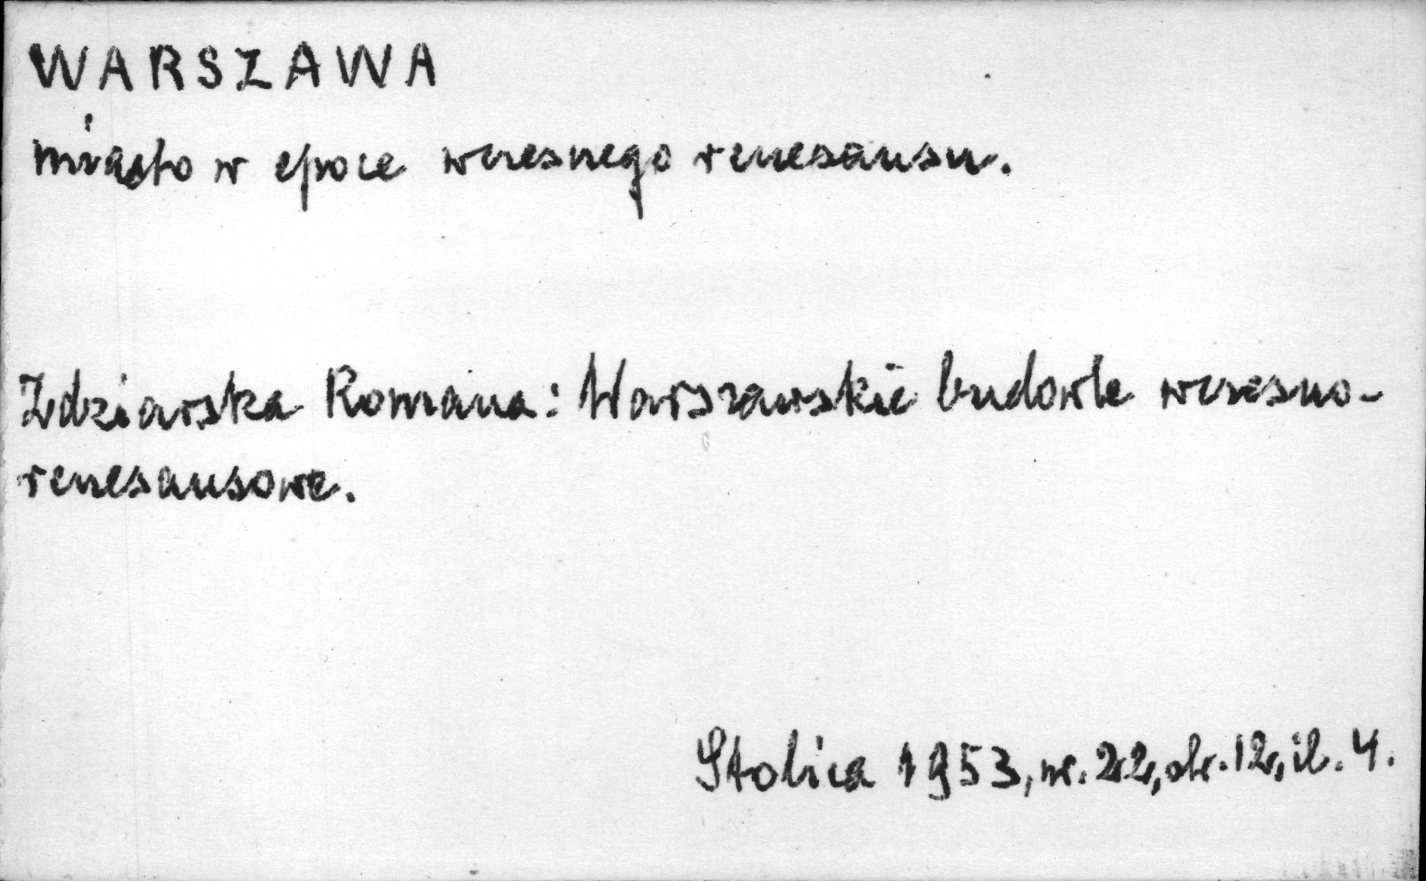 WARSZAWA
miasto w epoce wczesnego renesansu.
Zdziarska Romana: Warszawskie budowle wczesno-
renesansowe.
Stolica 1953, nr. 22, str. 12, il. 4.